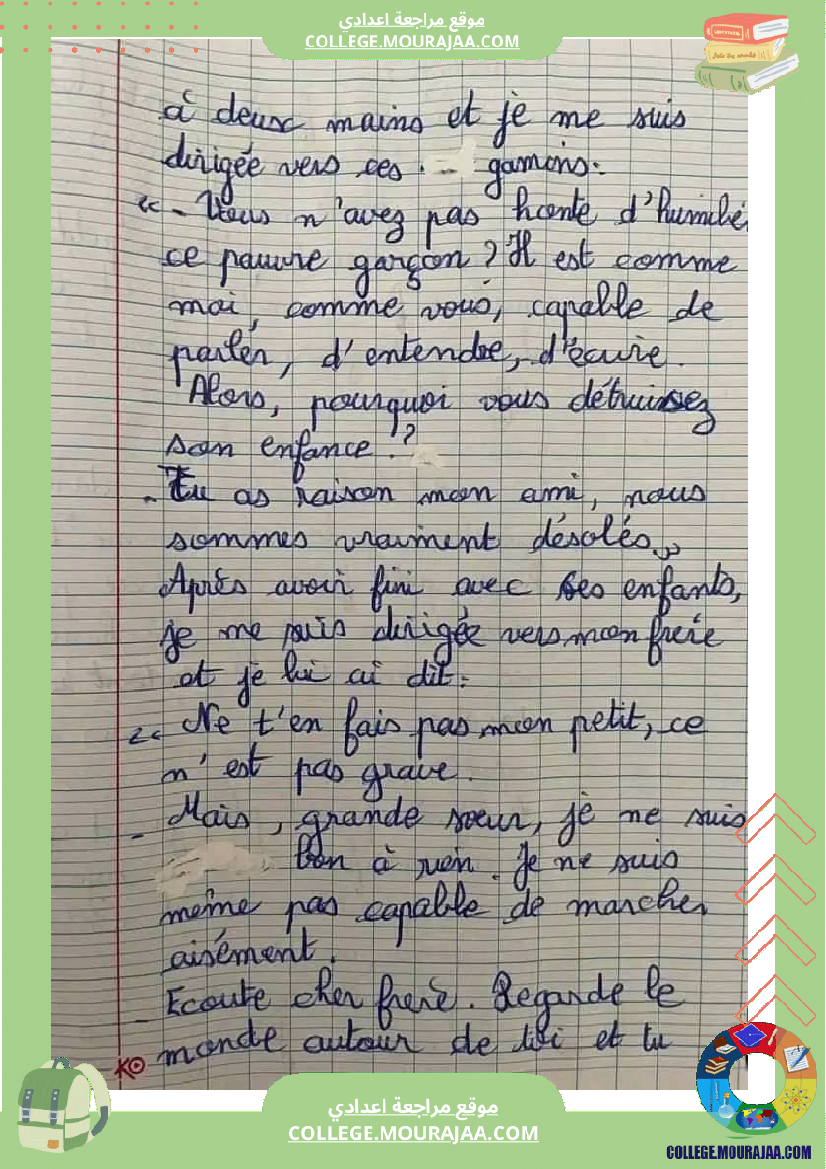 موقع مراجعة اعدادي
COLLEGE.MOURAJAA.COM
à deux mains et je me suis
dirigée vers ces gamins:
«- Vous n'avez pas honte d'humilié
ce pauvre garçon? Il est comme
moi, comme vous, capable de
parler, d'entendre, d'écrire.
Alors, pourquoi vous détruisez
son enfance!?
- Tu as raison mon ami, nous
sommes vraiment désolés.»
Après avoir fini avec ses enfants,
je me suis dirigée vers mon frère
et je lui ai dit:
«Ne t'en fais pas mon petit, ce
n'est pas grave.
- Mais, grande sœur, je ne suis
bon à rien. Je ne suis
même pas capable de marcher
aisément.
- Ecoute cher frère. Regarde le
monde autour de toi et tu
موقع مراجعة اعدادي
COLLEGE.MOURAJAA.COM
COLLEGE.MOURAJAA.COM